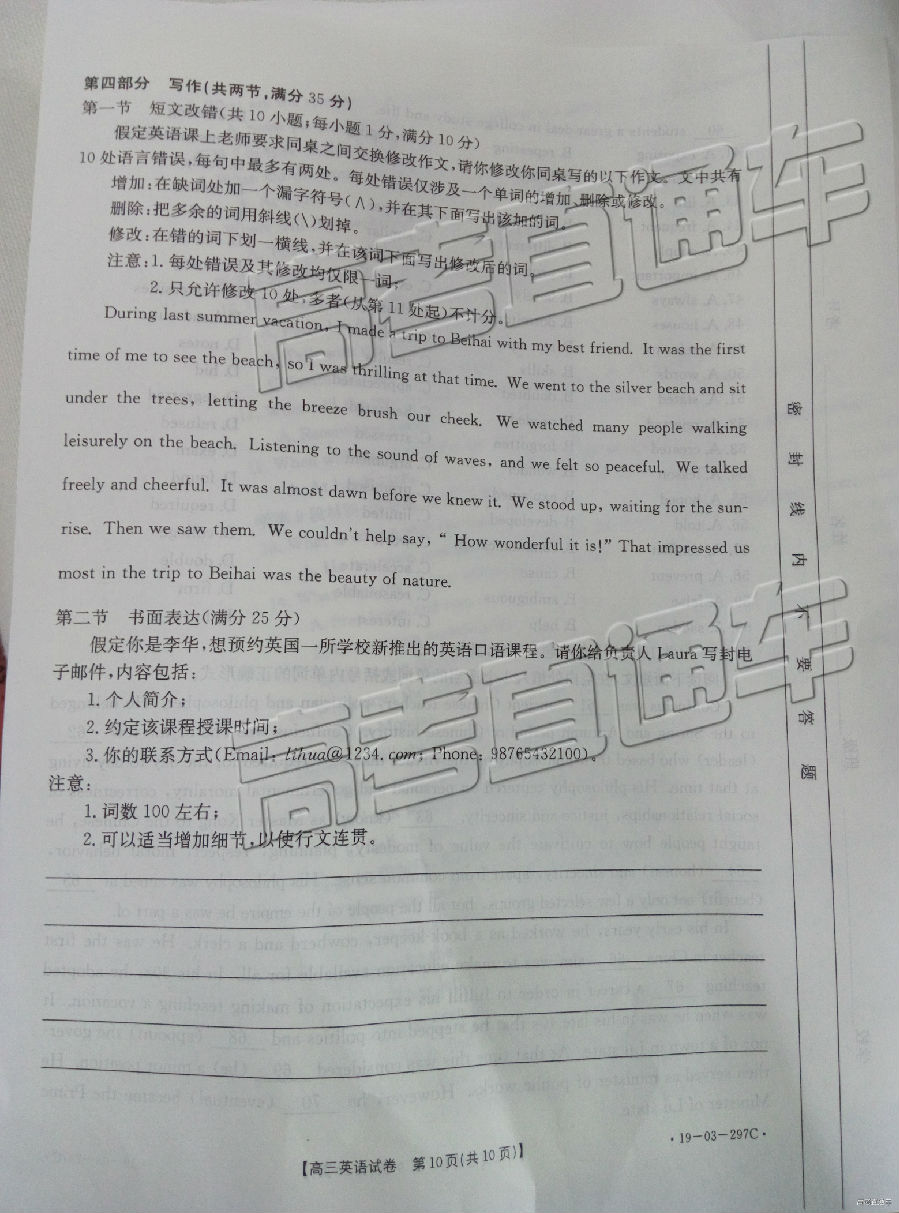 第四部分 写作(共两节,满分 35 分)
第一节 短文改错(共 10 小题;每小题 1 分,满分 10 分)
假定英语课上老师要求同桌之间交换修改作文,请你修改你同桌写的以下作文。文中共有
10 处语言错误,每句中最多有两处。每处错误仅涉及一个单词的增加、删除或修改。
增加:在缺词处加一个漏字符号(∧),并在其下面写出该加的词。
删除:把多余的词用斜线(\)划掉。
修改:在错的词下划一横线,并在该词下面写出修改后的词。
注意:1. 每处错误及其修改均仅限一词;
2. 只允许修改 10 处,多者(从第 11 处起)不计分。
During last summer vacation, I made a trip to Beihai with my best friend. It was the first
time of me to see the beach, so I was thrilling at that time. We went to the silver beach and sit
under the trees, letting the breeze brush our cheek. We watched many people walking
leisurely on the beach. Listening to the sound of waves, and we felt so peaceful. We talked
freely and cheerful. It was almost dawn before we knew it. We stood up, waiting for the sun-
rise. Then we saw them. We couldn't help say, “ How wonderful it is!” That impressed us
most in the trip to Beihai was the beauty of nature.
第二节 书面表达(满分 25 分)
假定你是李华,想预约英国一所学校新推出的英语口语课程。请你给负责人 Laura 写封电
子邮件,内容包括:
1. 个人简介;
2. 约定该课程授课时间;
3. 你的联系方式(Email: lihua@1234.com; Phone: 98765432100)。
注意:
1. 词数 100 左右;
2. 可以适当增加细节,以使行文连贯。
·19-03-297C·
【高三英语试卷 第 10 页(共 10 页)】
密 封 线 内 不 要 答 题
高考直通车
高考直通车